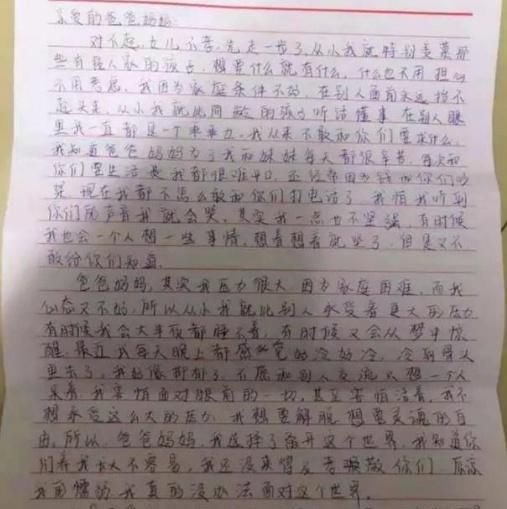 亲爱的爸爸妈妈:
对不起,女儿不孝,先走一步了,从小我就特别羡慕那
些有钱人家的孩子,想要什么就有什么,什么也不用担心
不用考虑,我因为家庭条件不好,在别人面前永远抬不
起头来,从小我就比同龄的孩子听话懂事,在别人眼
里我一直都是一个乖乖女,我从来不敢和你们要求什么,
我知道爸爸妈妈为了我和妹妹每天都很辛苦,每次和
你们要生活费我都很难开口,还经常因为钱和你们吵
架,现在我都不怎么敢和你们打电话了,我怕我听到
你们的声音我就会哭,其实我一点也不坚强,有时候
我也会一个人想一些事情,想着想着就哭了,但是又不
敢给你们知道,
爸爸妈妈,其实我压力很大,因为家庭困难,而我
心态又不好,所以从小我就比别人承受着更大的压力
有时候我会大半夜都睡不着,有时候又会从梦中惊
醒,最近我每天晚上都感觉的冷好冷,冷到骨头
里去了,我好像抑郁了,不愿和别人交流只想一个人
呆着,我害怕面对眼前的一切,甚至害怕活着,我不
想承受这么大的压力,我想要解脱想要灵魂的自
由,所以,爸爸妈妈,我选择了离开这个世界,我知道你
们养我长大不容易,我还没来得及孝顺你们,原谅
我的懦弱我真的没办法面对这个世界,